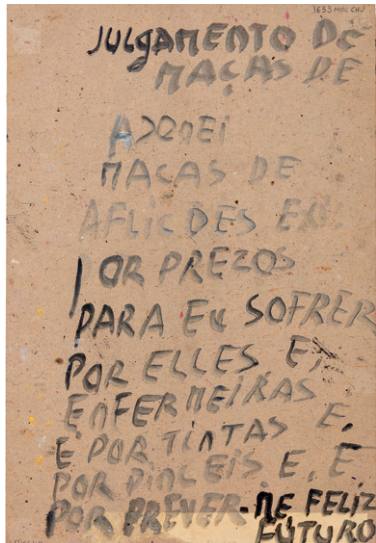 1653 MDL CHJ
JULGAMENTO DE
MAÇAS DE
ADONEI
MAÇAS DE
AFLICÕES EU.
POR PREZOS
PARA EU SOFRER
POR ELLES E,
ENFERMEIRAS
E POR TINTAS E.
POR PINCEIS E. E
POR PREVER-ME FELIZ
FUTURO